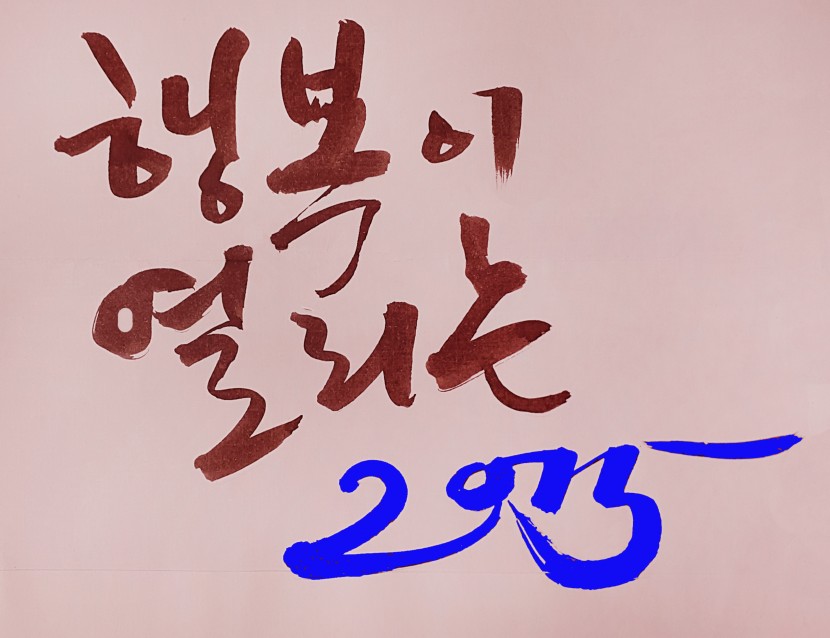 행복이
열리는
2015